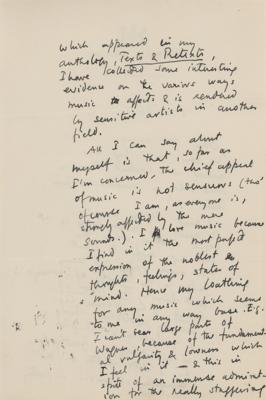 which appeared in my
anthology, Texts & Pretexts,
I have collected some interesting
evidence on the various ways
music affects & is rendered
by sensitive artists in another
field.
All I can say about
myself is that, so far as
I'm concerned, the chief appeal
of music is not sensuous (tho'
of course I am, as everyone is,
strongly affected by the mere
sounds.). I love music because
I find in it the most perfect
expression of the noblest
thoughts, feelings, states of
mind. Hence my loathing
for any music which seems
to me in any way base. E.g.
I can't bear large parts of
Wagner, because of the fundament-
al vulgarity & lowness which
I feel in it — & this in
spite of an immense admirat-
ion for the really stupefying